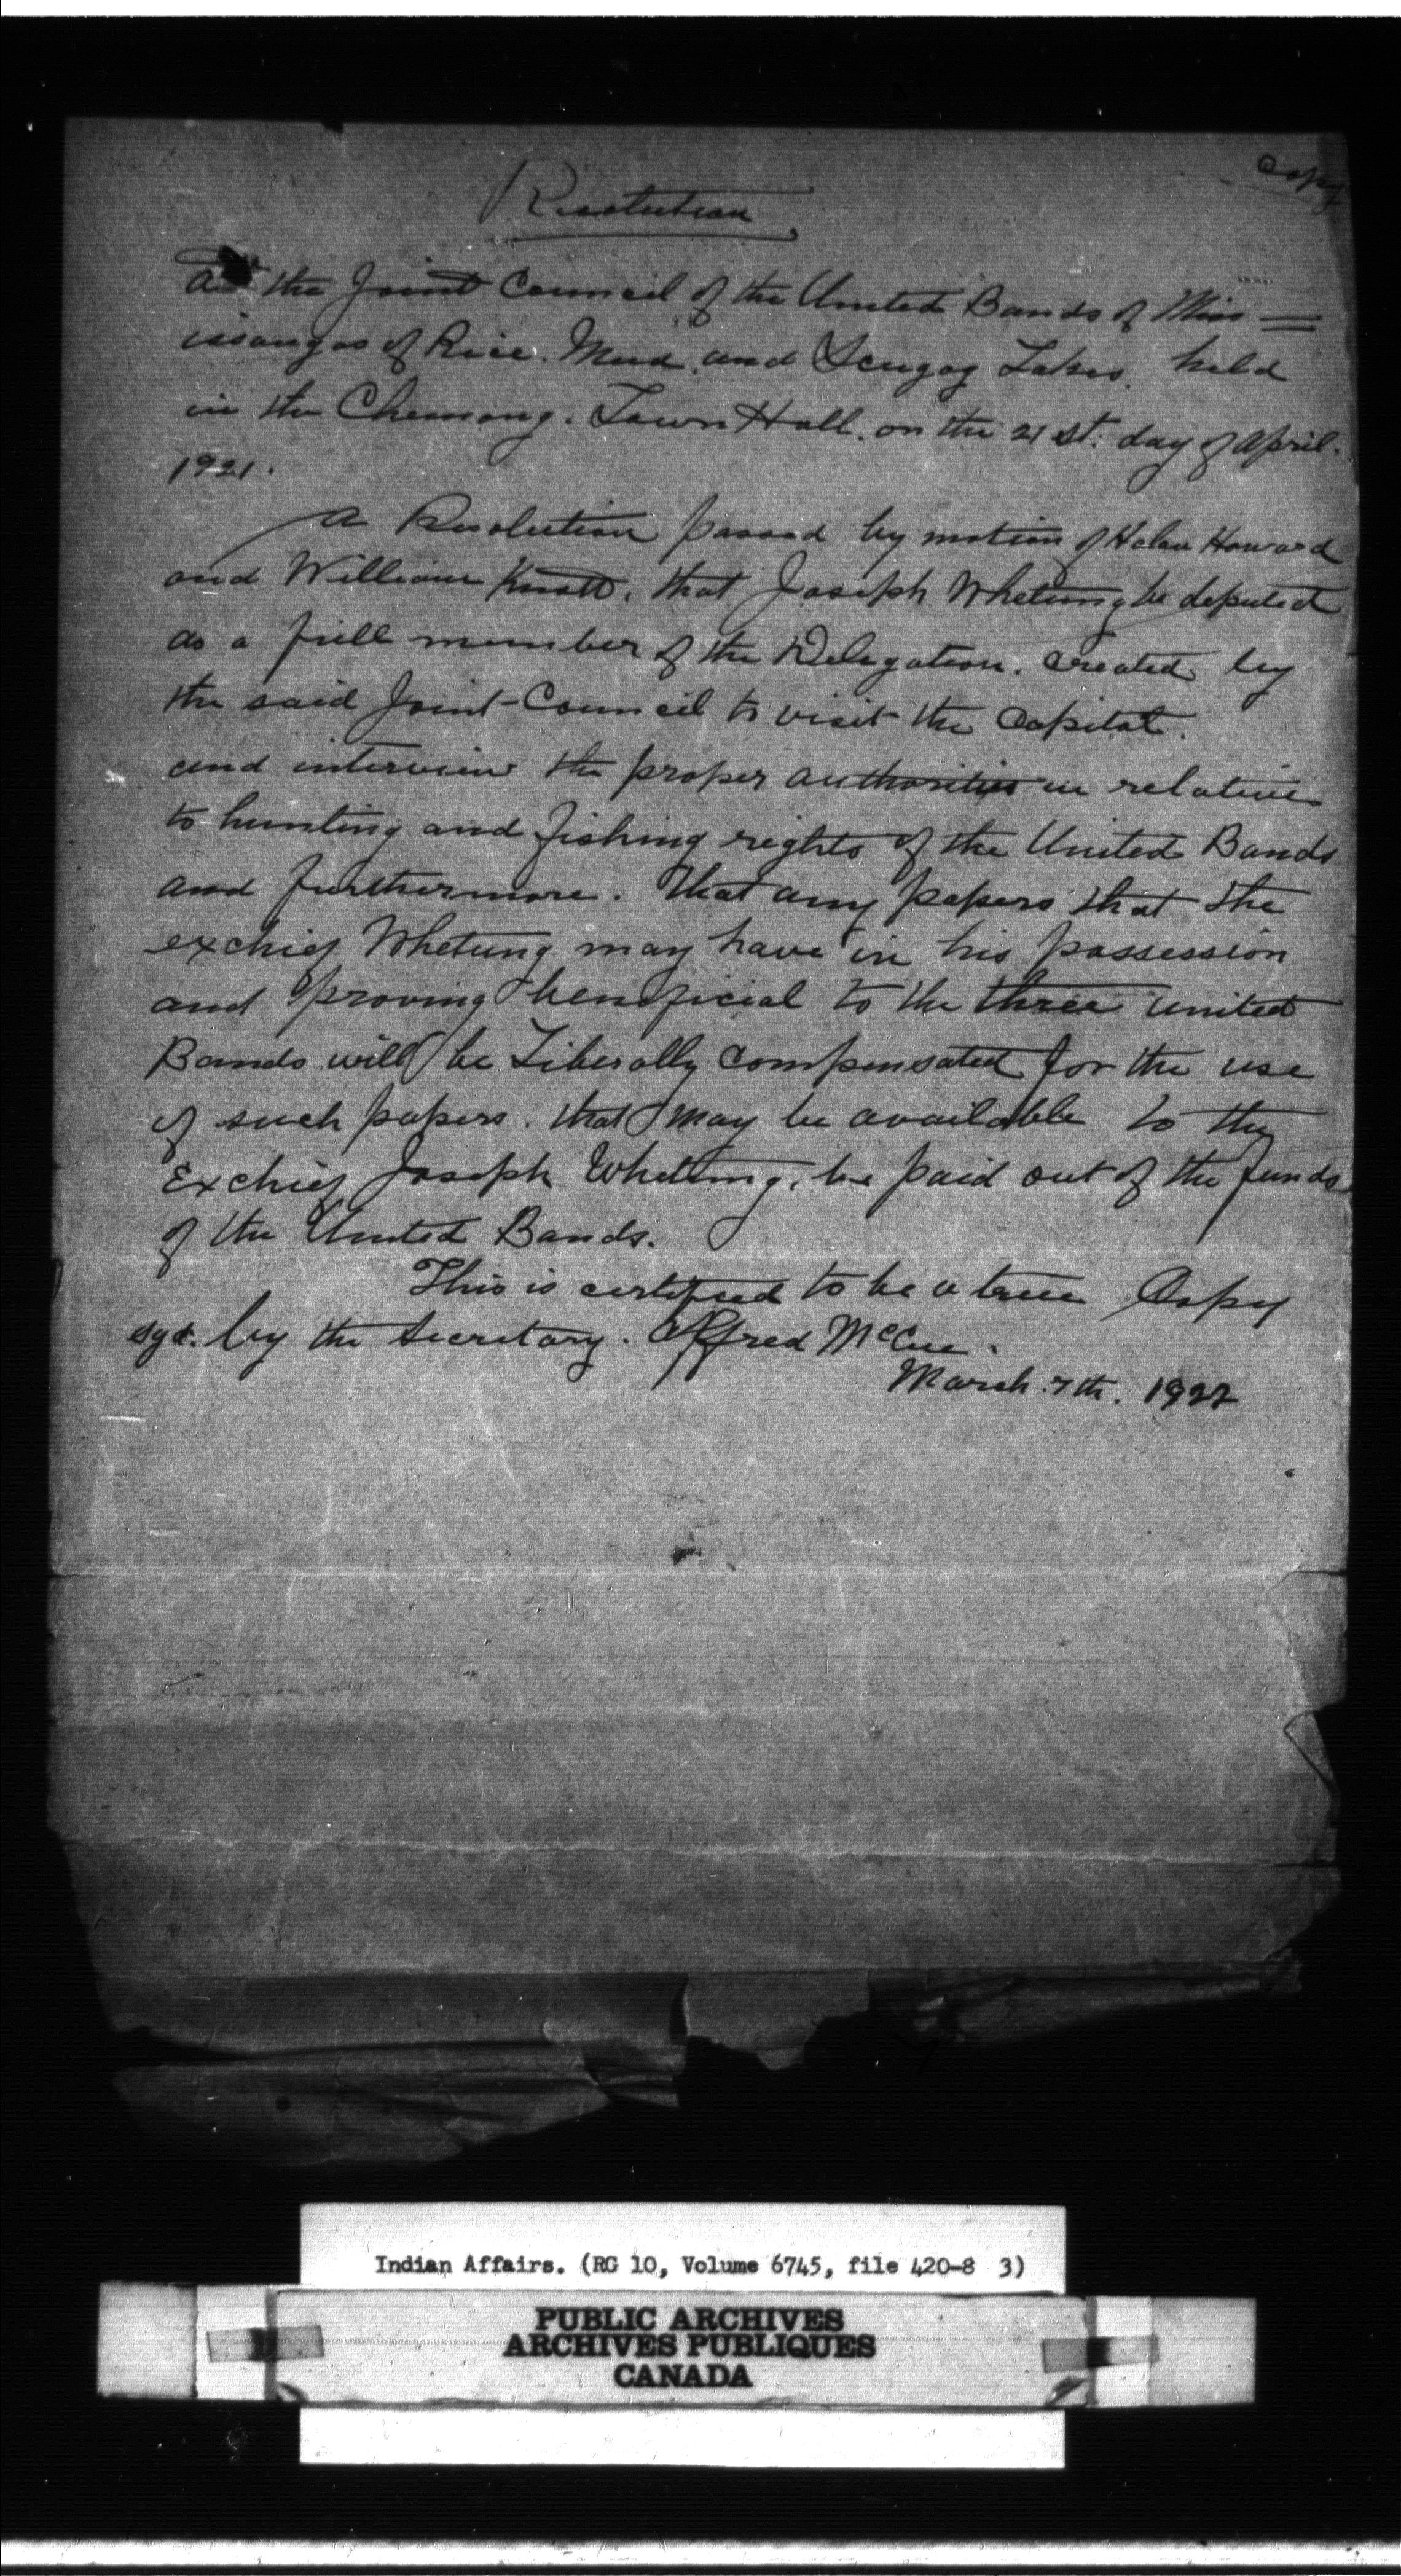 Copy
Resolution
At the Joint Council of the United Bands of Miss=
issaugas of Rice. Mud. and Scugog Lakes. held
in the Chemong. Town Hall. on the 21 st. day of April.
1921.
A Resolution passed by motion of Howard
and William Knott, that Joseph Whetung be deputed
as a full member of the Delegation. created by
the said Joint-Council to visit the Capital.
and interview the proper authorities in relative
to hunting and fishing rights of the United Bands
and furthermore. that any papers that the
exchief Whetung may have in his possession
and proving beneficial to the three united
Bands will be Liberally compensated for the use
of such papers. that may be available to the
Exchief Joseph Whetung. be paid out of the funds
of the United Bands.
This is certified to be a true Copy
sgd. by the Secretary. Alfred McCue.
March 7th. 1922
Indian Affairs. (RG 10, Volume 6745, file 420-8 3)
PUBLIC ARCHIVES
ARCHIVES PUBLIQUES
CANADA